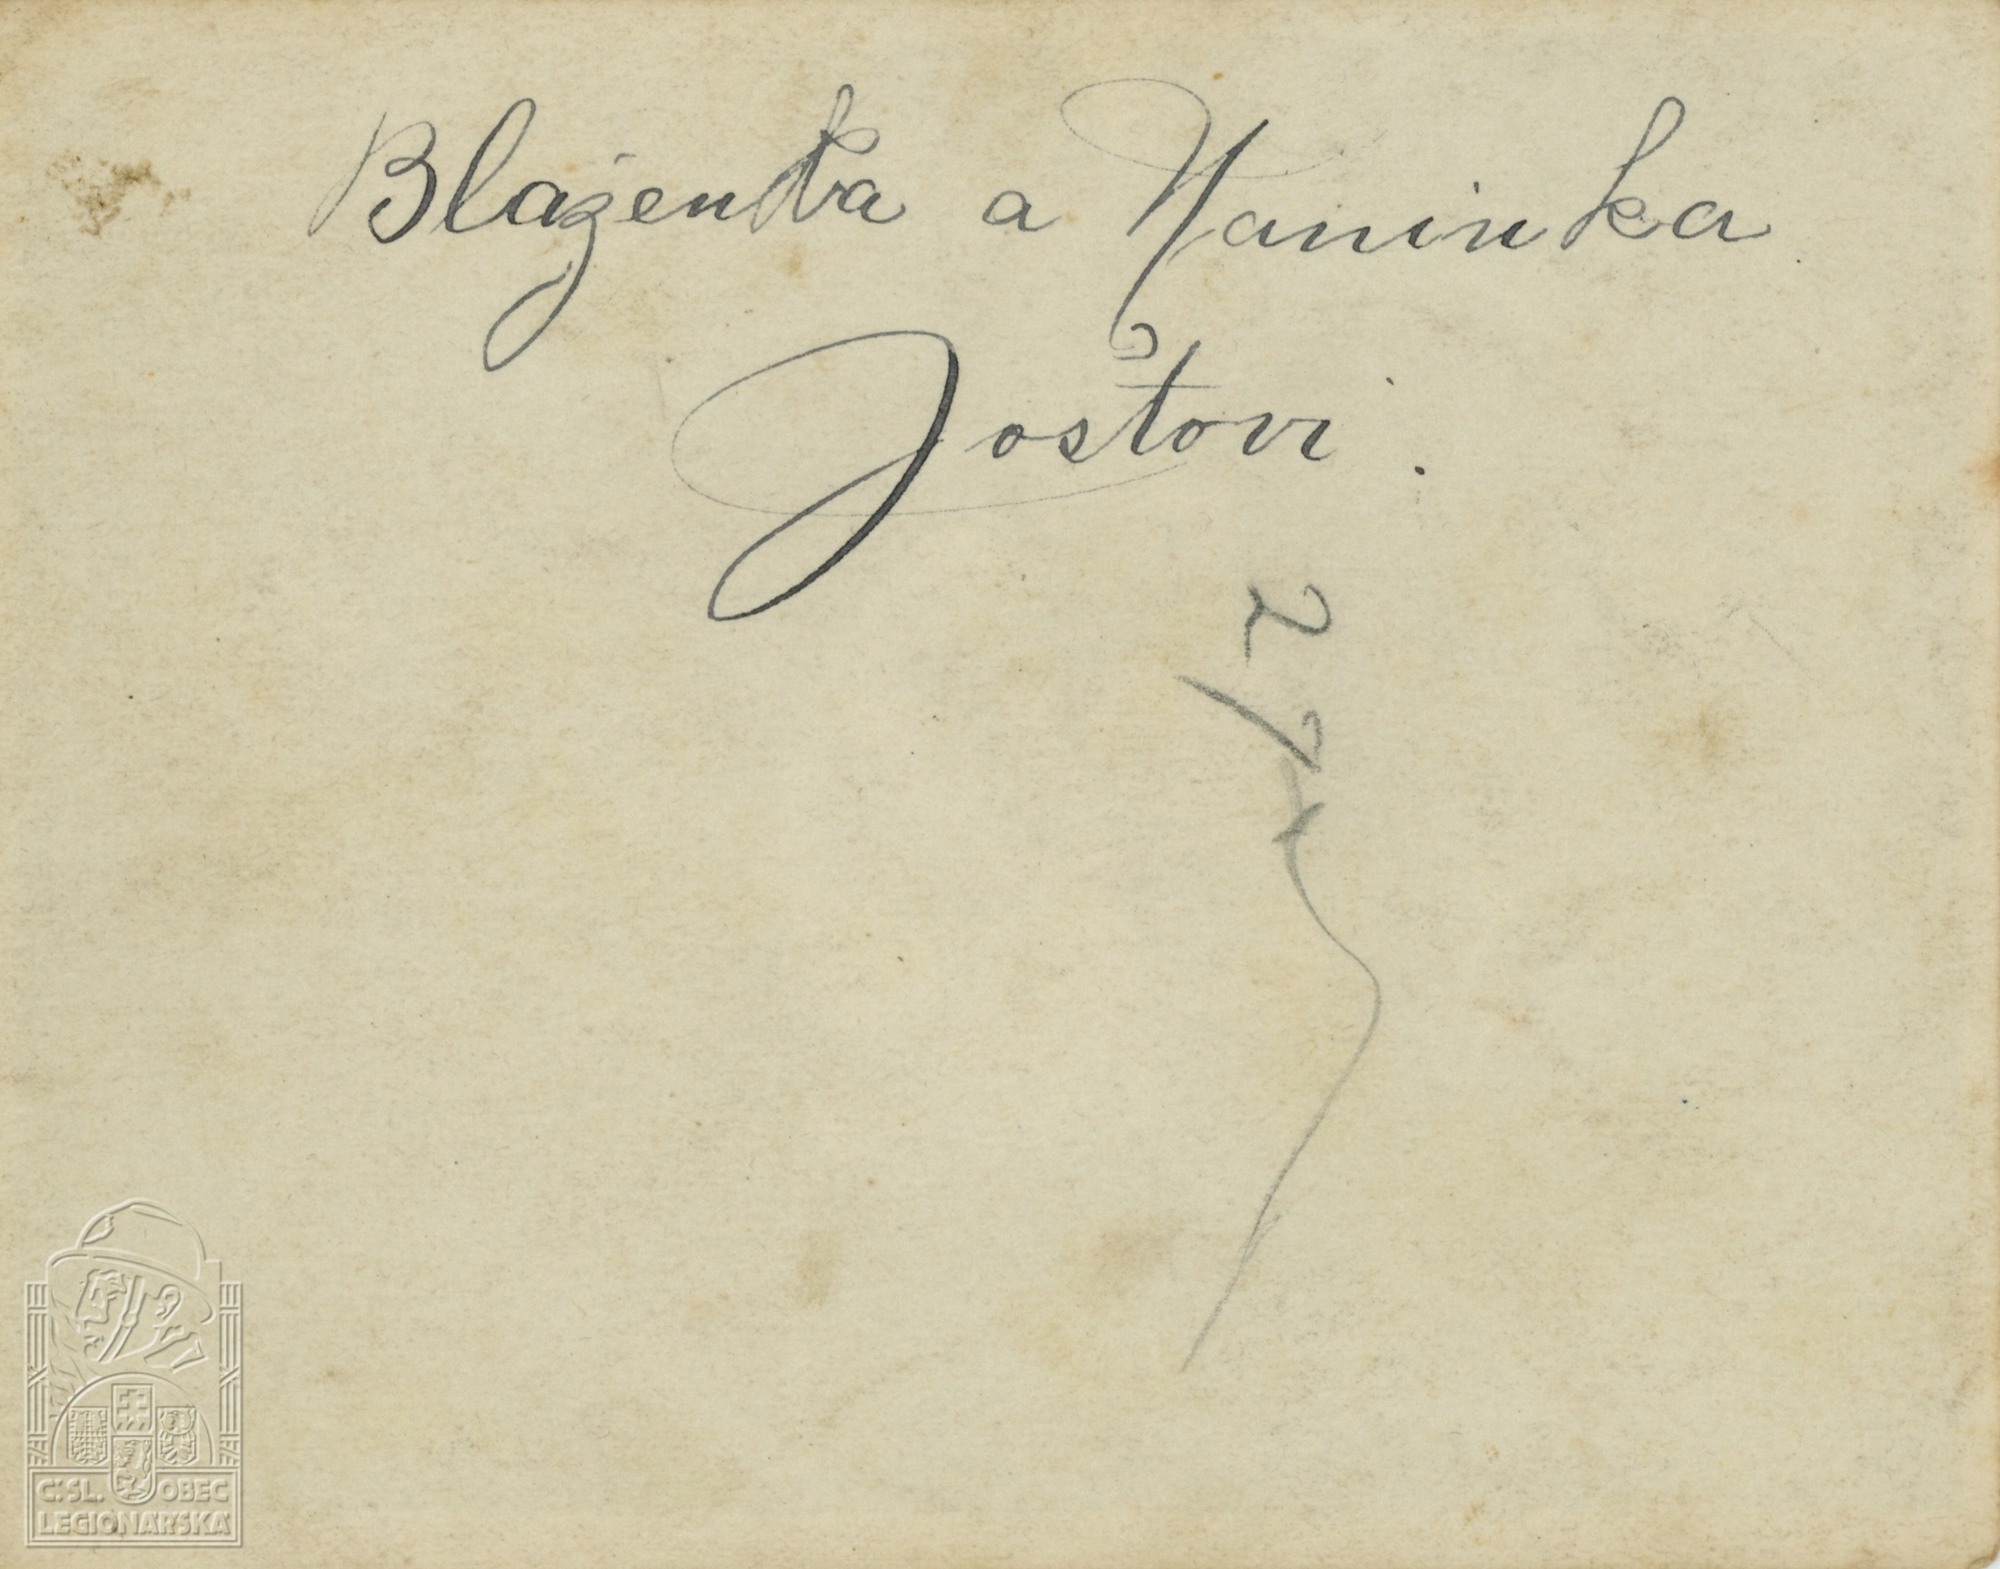 Blaženka a Naninka
Joštovi.
27
Č:SL. OBEC
LEGIONÁŘSKÁ